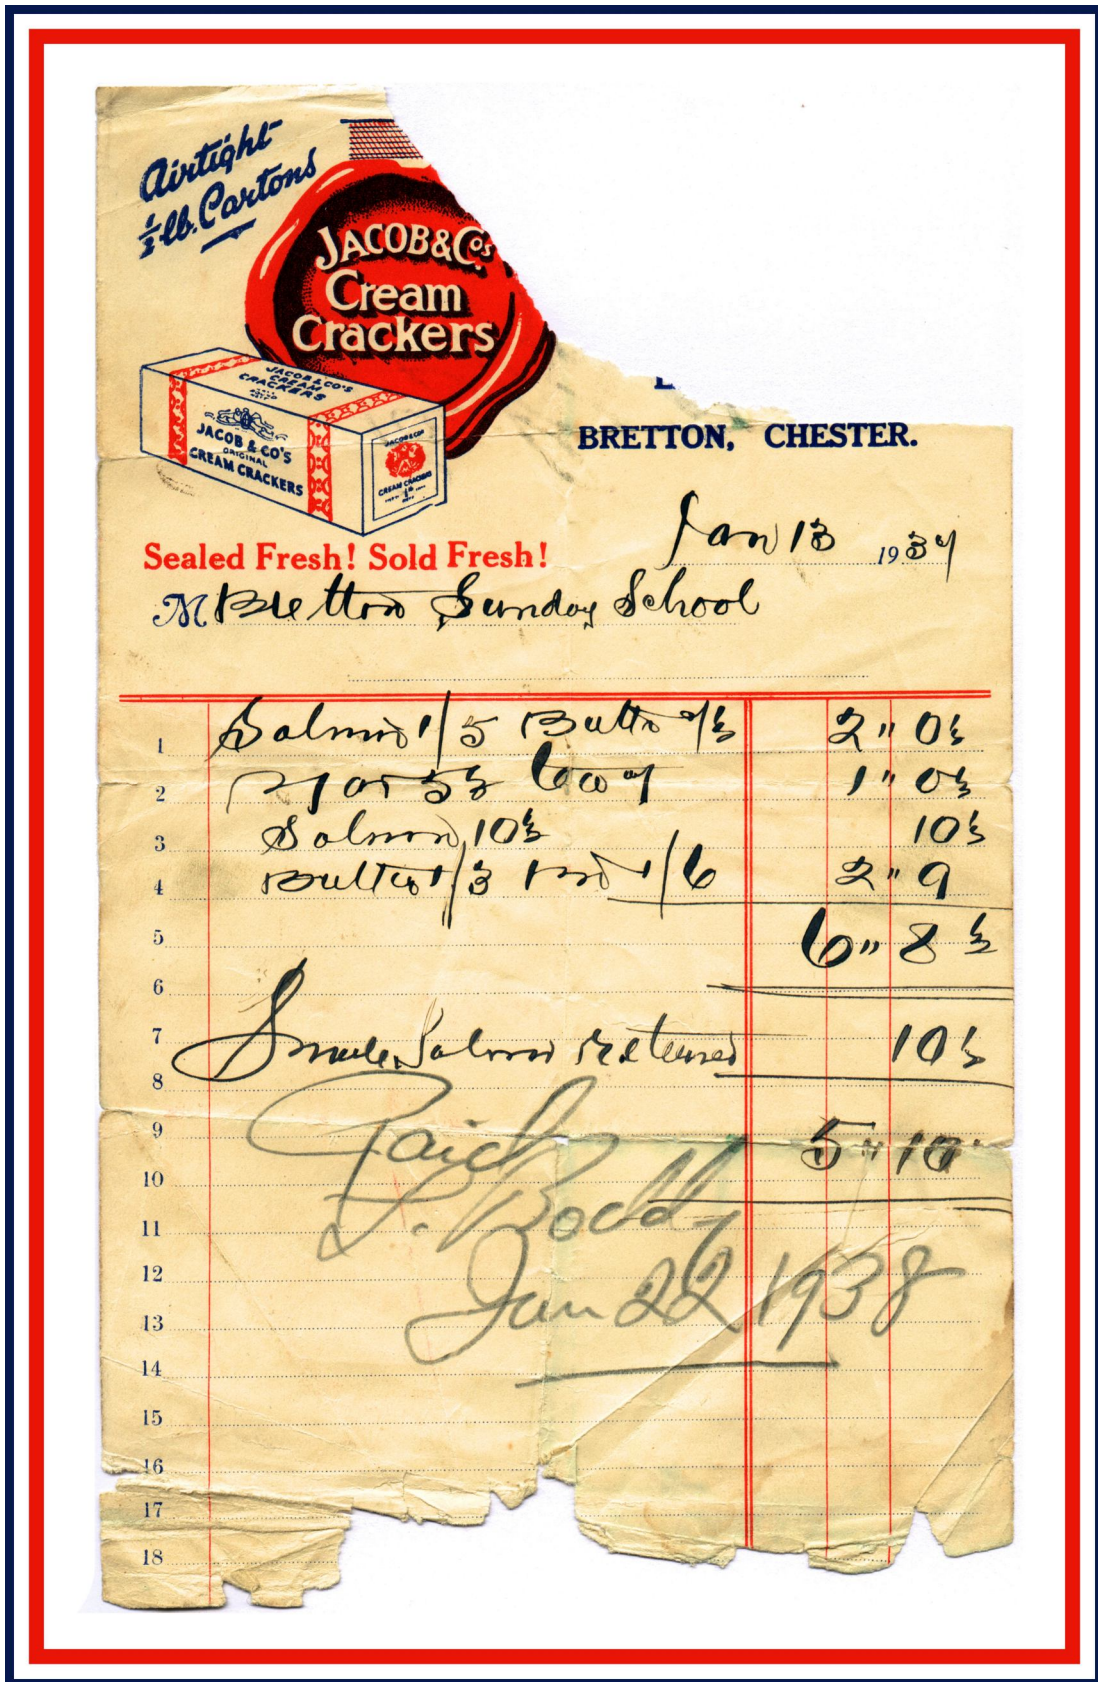 Airtight
½ lb. Cartons
JACOB & Co's.
Cream
Crackers
JACOB & CO'S
CREAM
CRACKERS
JACOB & CO'S
ORIGINAL
CREAM CRACKERS
JACOB & CO'S
CREAM CRACKERS
BRETTON, CHESTER.
Sealed Fresh! Sold Fresh!
Jan 13 1937
M Bretton Sunday School
1 Salmon 1/5 Butter 7½ 2 " 0½
2 5½ 1 " 0½
3 Salmon 10½ 10½
4 Butter 1/3 1/6 2 " 9
5 6 " 8½
6
7 Salmon Returned 10½
8
9 5 " 10
10 Paid
11 Boddy
12 Jan 22 1938
13
14
15
16
17
18